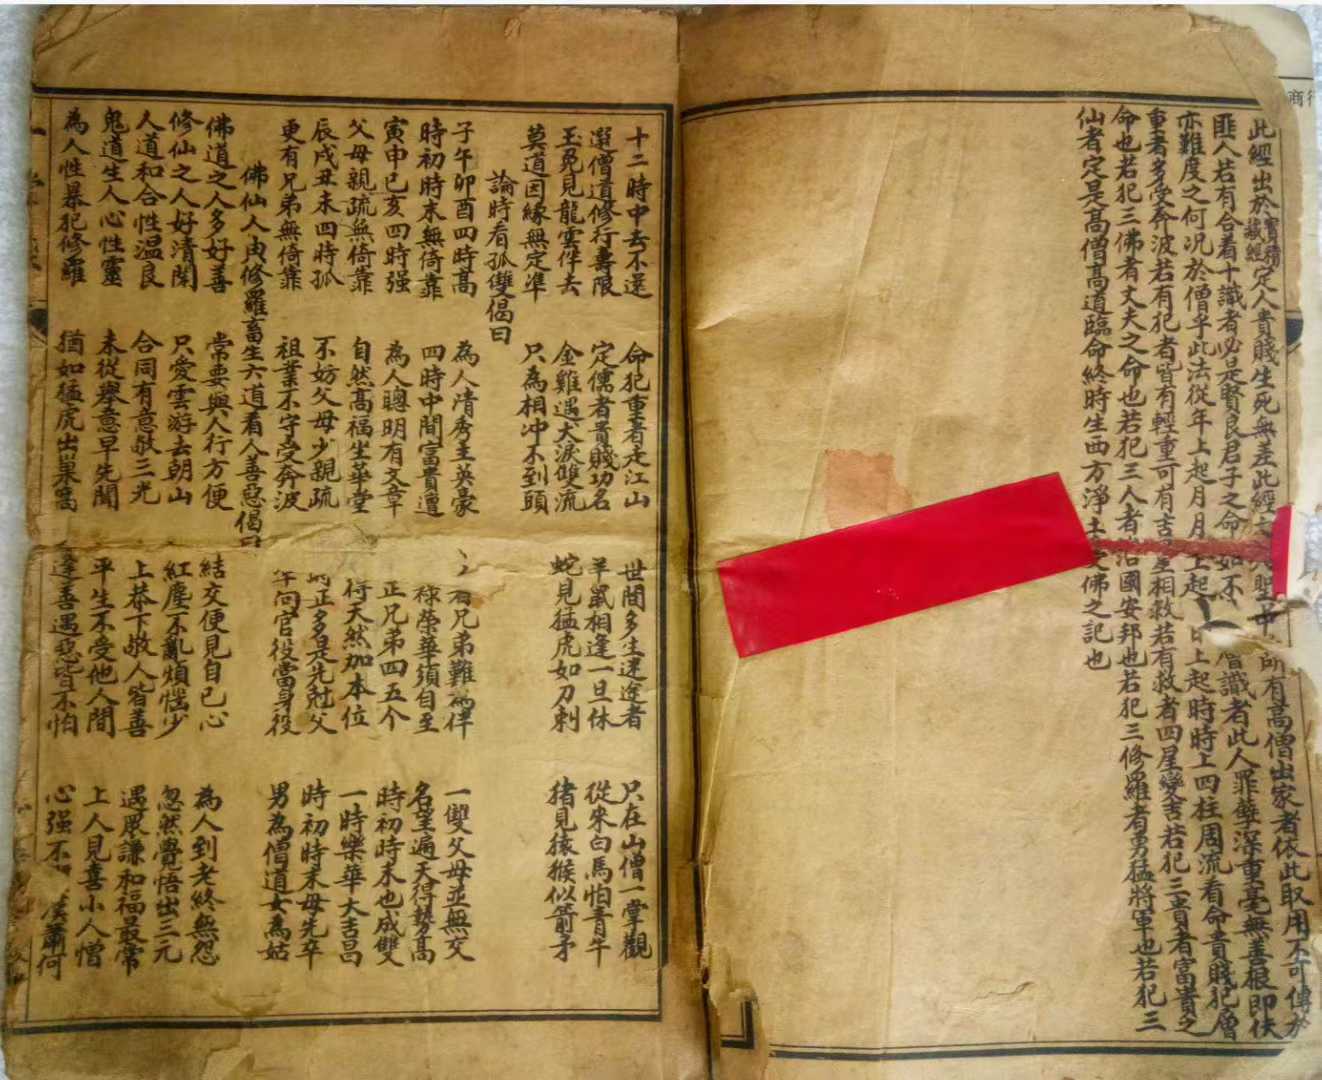 此經出於寶積藏經定人貴賤生死無差此經 聖中 所有高僧出家者依此取用不可傳於
匪人若有合着十識者必是賢良君子之命如不 僧識者此人罪孽深重毫無善根即佛
亦難度之何况於僧乎此法從年上起月月上起日日上起時時上四柱周流看命貴賤犯層
重者多受奔波若有犯者皆有輕重可有吉星相救若有救者四星變吉若犯三貴者富貴之
命也若犯三佛者丈夫之命也若犯三人者治國安邦也若犯三修羅者勇猛將軍也若犯三
仙者定是高僧高道臨命終時生西方淨土受佛之記也
商行
十二時中去不還 命犯重者走江山 世間多生迷途者 只在山僧一掌觀
選僧道修行壽限 定儒者貴賤功名 羊鼠相逢一旦休 從來白馬怕青牛
玉兔見龍雲伴去 金雞遇犬淚雙流 蛇見猛虎如刀刺 猪見猿猴似箭矛
莫道因緣無定準 只為相冲不到頭
論時看孤雙偈曰
子午卯酉四時高 為人清秀主英豪 有兄弟難為伴 一雙父母並無交
時初時末無倚靠 四時中間富貴遭 祿榮華須自至 名望遍天得勢高
寅申巳亥四時强 為人聰明有文章 正兄弟四五个 時初時末也成雙
父母親疏無倚靠 自然高福坐華堂 得天然加本位 一時樂華大吉昌
辰戌丑未四時孤 不妨父母少親疏 時正多是先尅父 時初時末母先卒
更有兄弟無倚靠 祖業不守受奔波 年问官役當身役 男為僧道女為姑
佛仙人鬼修羅畜生六道看人善惡偈曰
佛道之人多好善 常要與人行方便 結交便見自己心 為人到老終無怨
修仙之人好清閑 只愛雲游去朝山 紅塵不亂煩惱少 忽然覺悟出三元
人道和合性温良 合同有意敬三光 上恭下敬人皆善 遇眾謙和福最常
鬼道生人心性靈 未從舉意早先聞 平生不受他人間 上人見喜小人憎
為人性暴犯修羅 猶如猛虎出巢窩 逢善遇惡皆不怕 心强不 漢蕭何